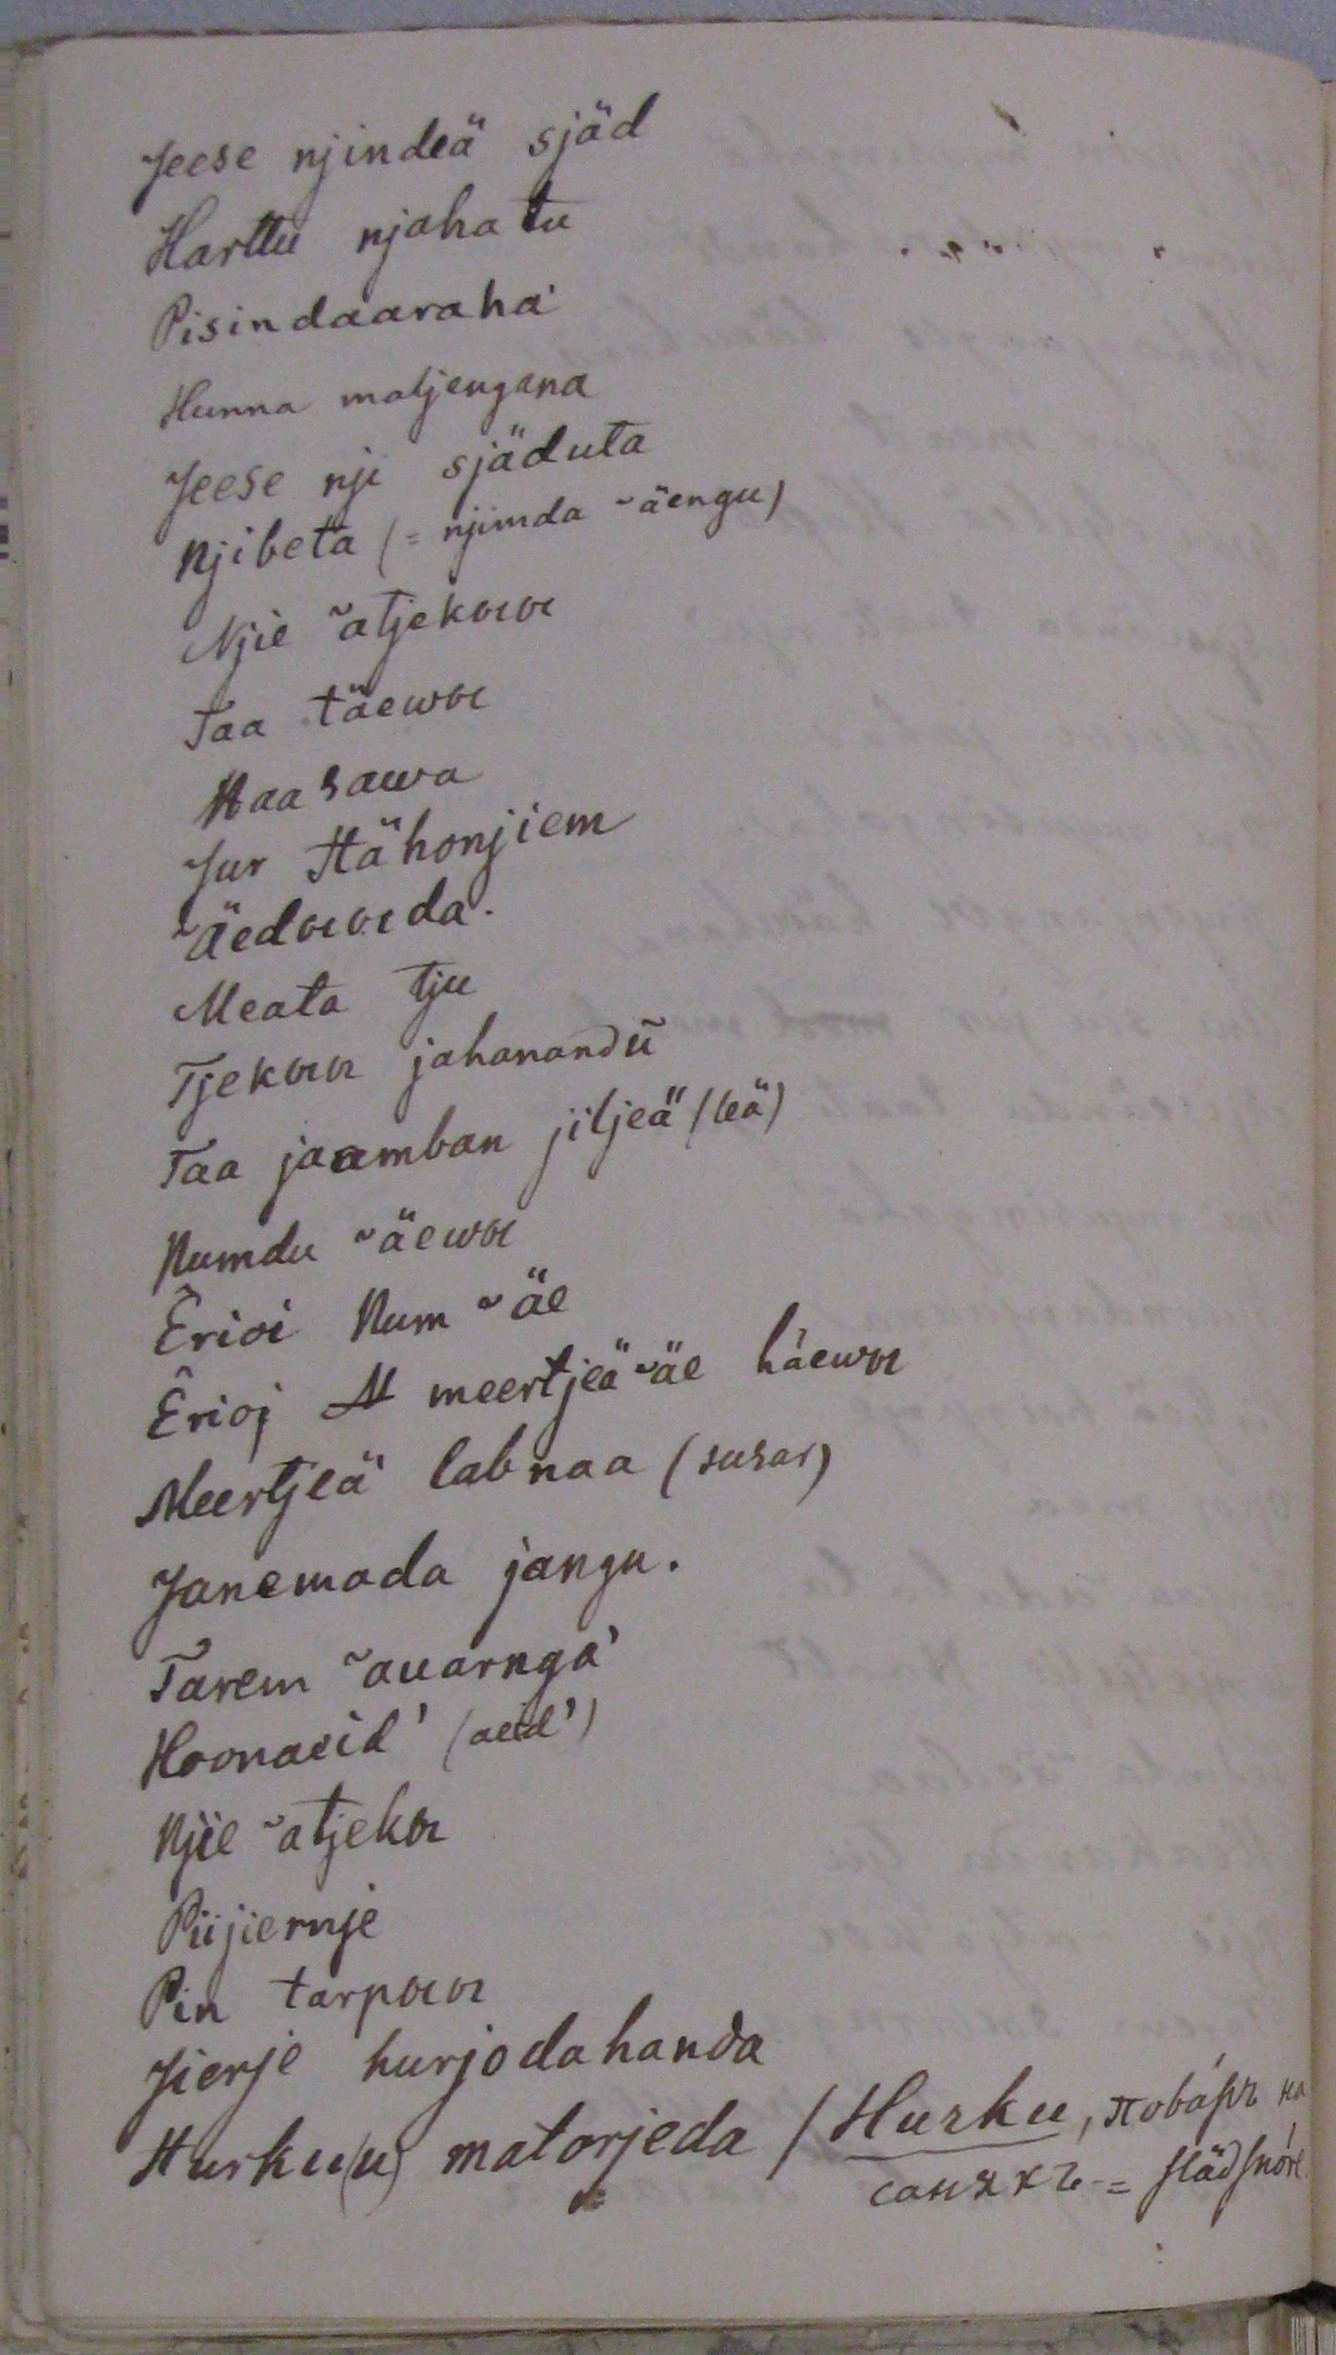 Jeese njindeä sjäd
Harttu njahatu
Pisindaaraha'
Hunna matjengana
Jeese nji sjäduta
Njibeta (= njimda ~äengu)
Njie ~atjekaıaı
Taa täewaı
Haasawa
Jur Hähonjiem
~äedaıaıda.
Meata tju
Tjekaıaı jahanandū
Taa jaamban jiljeä (leä)
Numdu ~äewaı
Êrioi Num ~äe
Êrioj meertjeä ~äe häewaı
Meertjeä labnaa (susar)
Janemada jangu.
Tarem ~auarnga'
Hoonaeid' (aeid')
Njie ~atjekaı
Piijiernje
Pin tarpaıaı
Jierje hurjodahanda
Hurku(u) matorjeda / Hurku, поваръ на
саняхъ =